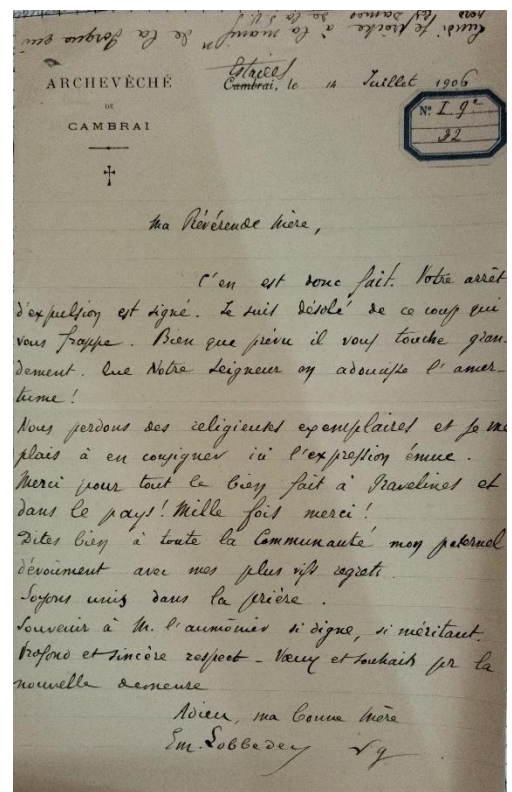 lundi je prêche à la maison de la Gorgue qui
les Dames de la S.U.
ARCHEVÊCHÉ
DE
CAMBRAI
Estaires
Cambrai, le 14 Juillet 1906
N° I g²
32
Ma Révérende Mère,
C'en est donc fait. Votre arrêt
d'expulsion est signé. Je suis désolé de ce coup qui
vous frappe. Bien que prévu il vous touche gran-
dement. Que Notre Seigneur en adoucisse l'amer-
tume !
Nous perdons des religieuses exemplaires et je me
plais à en consigner ici l'expression émue.
Merci pour tout le bien fait à Gravelines et
dans le pays ! Mille fois merci !
Dites bien à toute la Communauté mon paternel
dévoûment avec mes plus vifs regrets.
Soyons unis dans la prière.
Souvenir à M. l'aumônier si digne, si méritant.
Profond et sincère respect - Vœux et souhaits pr la
nouvelle demeure
Adieu, ma bonne Mère
Em. Lobbedey Vg